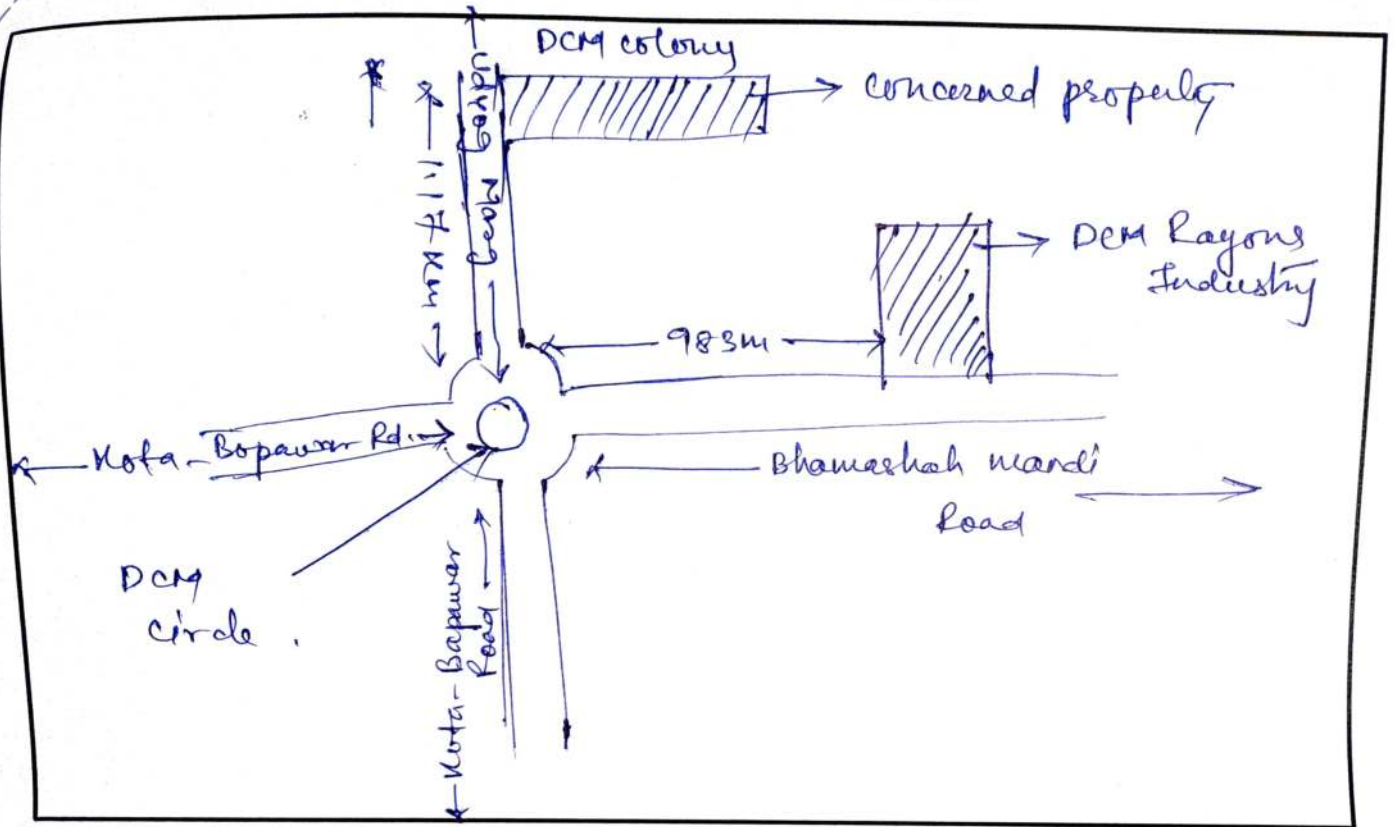 DCM colony
concerned property
Udyog Marg
1.17 Km
DCM Rayons
Industry
983m
Kota-Bopawar Rd.
Bhamashah mandi
Road
DCM
circle.
Kota-Bapawar
Road